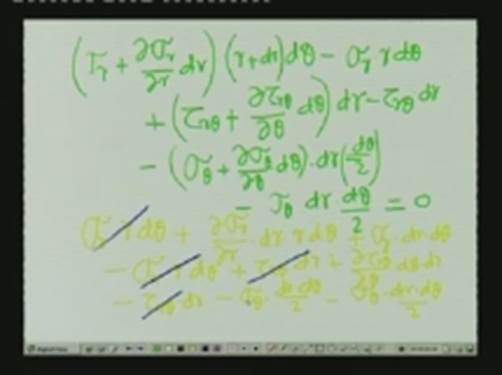 (σr + ∂σr/∂r dr) (r+dr)dθ − σr r dθ
+ (τrθ + ∂τrθ/∂θ dθ) dr − τrθ dr
− (σθ + ∂σθ/∂θ dθ)·dr(dθ/2)
− σθ dr·dθ/2 = 0
σr r dθ + ∂σr/∂r dr r dθ + σr dr dθ
− σr r dθ + τrθ dr + ∂τrθ/∂θ dθ dr
− τrθ dr − σθ dr dθ/2 − σθ dr dθ/2